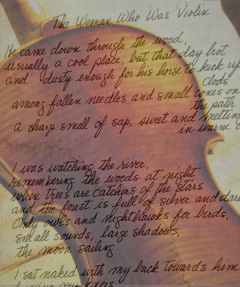 The Women Who Was Violin
He came down through the wood,
usually a cool place, but that day hot
and dusty enough for his horse to kick up
clods
among fallen needles and small cones on
the path
a sharp smell of sap, sweet and
in warm
I was watching the river,
remembering the woods at night
when trees are catchers of the stars
and the forest is full of silver and
Only owls and nighthawks for birds,
small sounds, large shadows,
the moon sailing
I sat naked with my back towards him
my knees